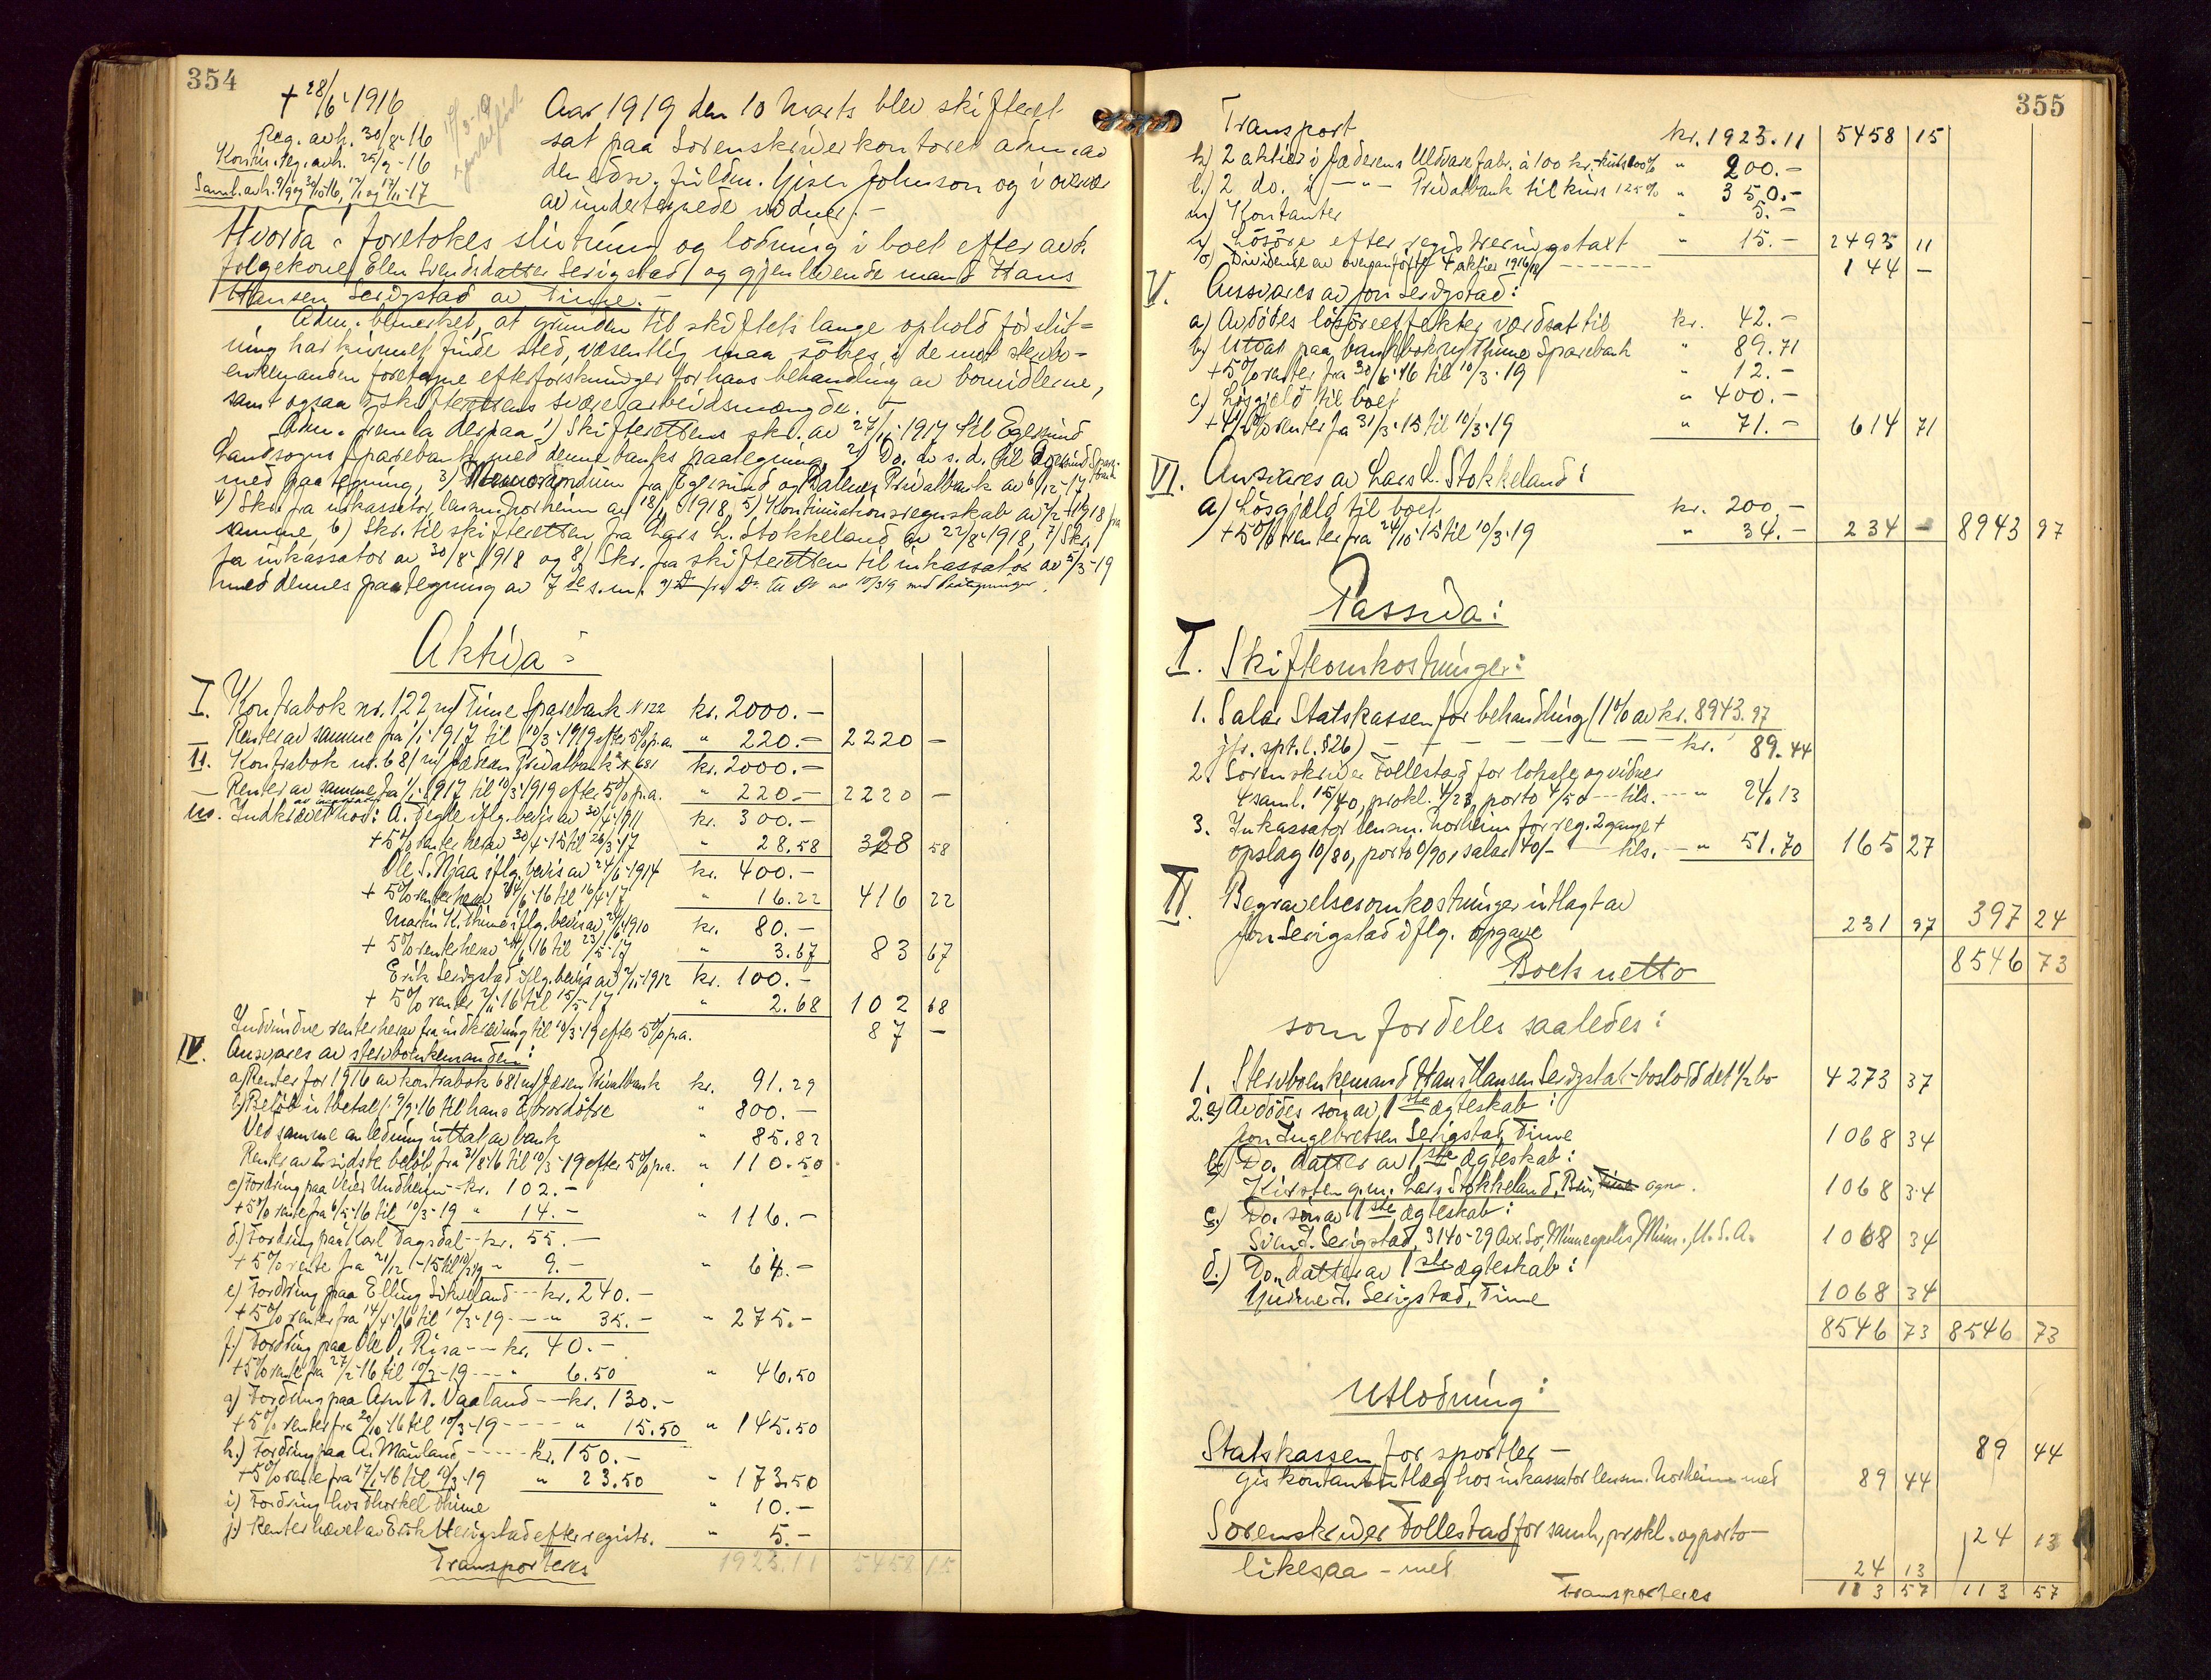 354
+ 28/6-1916
Reg. avh. 30/8-16
Kontin. reg. avh. 25/9-16
Saml. avh. 9/9 og 30/10-16, 12/1 og 17/11-17
Aar 1919 den 10 Marts blev skifteret
sat paa Sorenskriverkontoret adm. av
den edsv. fuldm. Giser Johnson og i overvær
av undertegnede vidner:-
Hvorda: foretokes slutning og lodning i boet efter avd.
folgekone Elen Svendsdatter Serigstad og gjenlevende mand Hans
Hansen Serigstad av Time.-
Adm. bemerket, at grunden til skiftets lange ophold før slut=
ning har kunnet finde sted, væsentlig maa søkes i de mot stervbo=
enkemanden foretagne efterforskninger for hans behandling av bomidlerne,
samt ogsaa i skifterettens svære arbeidsmængde. -
Adm. fremla derpaa 1) Skifterettens skr. av 27/11-1917 til Egersund
Landsogns Sparebank med denne banks paategning, 2) Do. av s.d. til Egersund Sparebank
med paategning, 3) Memorandum fra Egersund og Dalernes Privatbank av 6/12-17
4) Skr. fra inkassator, lensm. Norheim av 18/1 1918, 5) Kontinuationsregnskab av 2/2-1918 fra
samme, 6) Skr. til skifteretten fra Lars L. Stokkeland av 22/8-1918, 7) Skr.
fra inkassator av 30/8-1918 og 8) Skr. fra skifteretten til inkassator av 5/3-19
med dennes paategning av 7de s.m. 9) Do fra Do til Do av 10/3 19 med Paategninger.
Aktiva:
I. Kontrabok nr. 122 m/ Time Sparebank N 122 kr. 2000.-
Renter av samme fra 1/1-1917 til 10/3-1919 efter 5% p.a. " 220.- 2220 -
II. Kontrabok nr. 681 m/ Jæderen Privatbank N. 681 kr. 2000.-
Renter av samme fra 1/1-1917 til 10/3-1919 efter 5% p.a. " 220.- 2220 -
III. Indkrævet hos: A. Tegle iflg. bevis av 30/4-1911 kr. 300.-
+ 5% renter herav 30/4-15 til 26/3-17 " 28.58 328 58
Ole S. Njaa iflg. bevis av 24/6-1914 kr. 400.-
+ 5% renter herav 24/6-16 til 16/4-17 " 16.22 416 22
Martin K. Thime iflg. bevis av 24/6-1910 kr. 80.-
+ 5% renter herav 24/6-16 til 23/5-17 " 3.67 83 67
Erik Serigstad iflg. bevis av 2/11-1912 kr. 100.-
+ 5% renter 2/11-16 til 15/5-17 " 2.68 102 68
Indvundne renter herav fra indkrævning til 10/3-19 efter 5% p.a. 87 -
IV. Ansvares av stervboenkemanden:
a) Renter for 1916 av kontrabok 681 m/ Jæren Privatbank kr. 91.29
b) Beløb utbetalt 9/9-16 til hans 2 brordøtre " 800.-
Ved samme anledning uttat av bank " 85.82
Renter av 2 sidste beløb fra 31/8-16 til 10/3-19 efter 5% p.a. " 110.50
c) Fordring paa Peder Undheim - kr. 102.-
+ 5% rente fra 6/5-16 til 10/3-19 " 14.- " 116.-
d.) Fordring paa Karl Dagsdal - kr. 55.-
+ 5% rente fra 21/12-15 til 10/3-19 " 9.- " 64.-
e) Fordring paa Elling Sikveland -- kr. 240.-
+ 5% renter fra 14/4-16 til 10/3-19 -- " 35.- " 275.-
f.) Fordring paa Ole O. Risa -- kr. 40.-
+ 5% rente fra 27/2-16 til 10/3-19 --- " 6.50 " 46.50
g) Fordring paa Arnt T. Vaaland -- kr. 130.-
+ 5% renter fra 20/10-16 til 10/3-19 ---- " 15.50 " 145.50
h.) Fordring paa A. Mauland ----- kr. 150.-
+ 5% rente fra 17/1-16 til 10/3-19 " 23.50 " 173.50
i) Fordring hos Thorkel Thime " 10.-
j.) Renter hævet av Erik Serigstad efter registr. " 5.-
Transporteres 1923.11 5458 15
355
Transport kr. 1923.11 5458 15
k) 2 aktier i Jæderens Uldvarefabr. à 100 kr. kurs 100% " 200.-
l.) 2 do. i -"- Privatbank til kurs 125% " 350.-
m) Kontanter " 5.-
n) Løsøre efter registreringstakst " 15.- 2493 11
o) Dividende av ovenanførte 4 aktier 1916/18 ------- 144 -
V. Ansvares av Jon Serigstad:
a) Avdødes løsøreeffekter værdsat til kr. 42.-
b) Uttat paa bankbok m/ Thime Sparebank " 89.71
+ 5% renter fra 30/6-16 til 10/3-19 " 12.-
c) Løsgjeld til boet " 400.-
+ 4½% renter fra 31/3-15 til 10/3-19 " 71.- 614 71
VI. Ansvares av Lars L. Stokkeland:
a) Løsgjæld til boet kr. 200.-
+ 5% renter fra 24/10-15 til 10/3-19 " 34.- 234 - 8943 97
Passiva:
I. Skifteomkostninger:
1. Salær Statskassen for behandling (1% av kr. 8943.97
jfr. spt.l. §26) - - - - - - - kr. 89.44
2. Sorenskriver Follestad for lokale og vidner
4 saml. 15/40, prokl. 4/23, porto 4/50 -- tils. --- " 24.13
3. Inkassator lensm. Norheim for reg. 2 gange +
opslag 10/80, porto 0/90, salær 40/- -- tils. -- " 51.70 165 27
II. Begravelsesomkostninger utlagt av
Jon Serigstad iflg. opgave 231 97 397 24
Boets netto 8546 73
som fordeles saaledes:
1. Stervboenkemand Hans Hansen Serigstad - boslodd det ½ bo 4273 37
2.a) Avdødes søn av 1ste ægteskab:
Jon Ingebretsen Serigstad, Time 1068 34
b) Do. datter av 1ste ægteskab:
Kirsten g.m. Lars Stokkeland, Bru, Time ogn. 1068 34
c.) Do. søn av 1ste ægteskab:
Svend. Serigstad, 3140-29 Ave. So, Minneapolis, Minn., U.S.A. 1068 34
d.) Do. datter av 1ste ægteskab:
Gurine I. Serigstad, Time 1068 34
8546 73 8546 73
Utlodning:
Statskassen for sportler - 89 44
gis kontant utlæg hos inkassator lensm. Norheim med 89 44
Sorenskriver Follestad for saml., prokl. og porto 24 13
likesaa - med 24 13
Transporteres 113 57 113 57